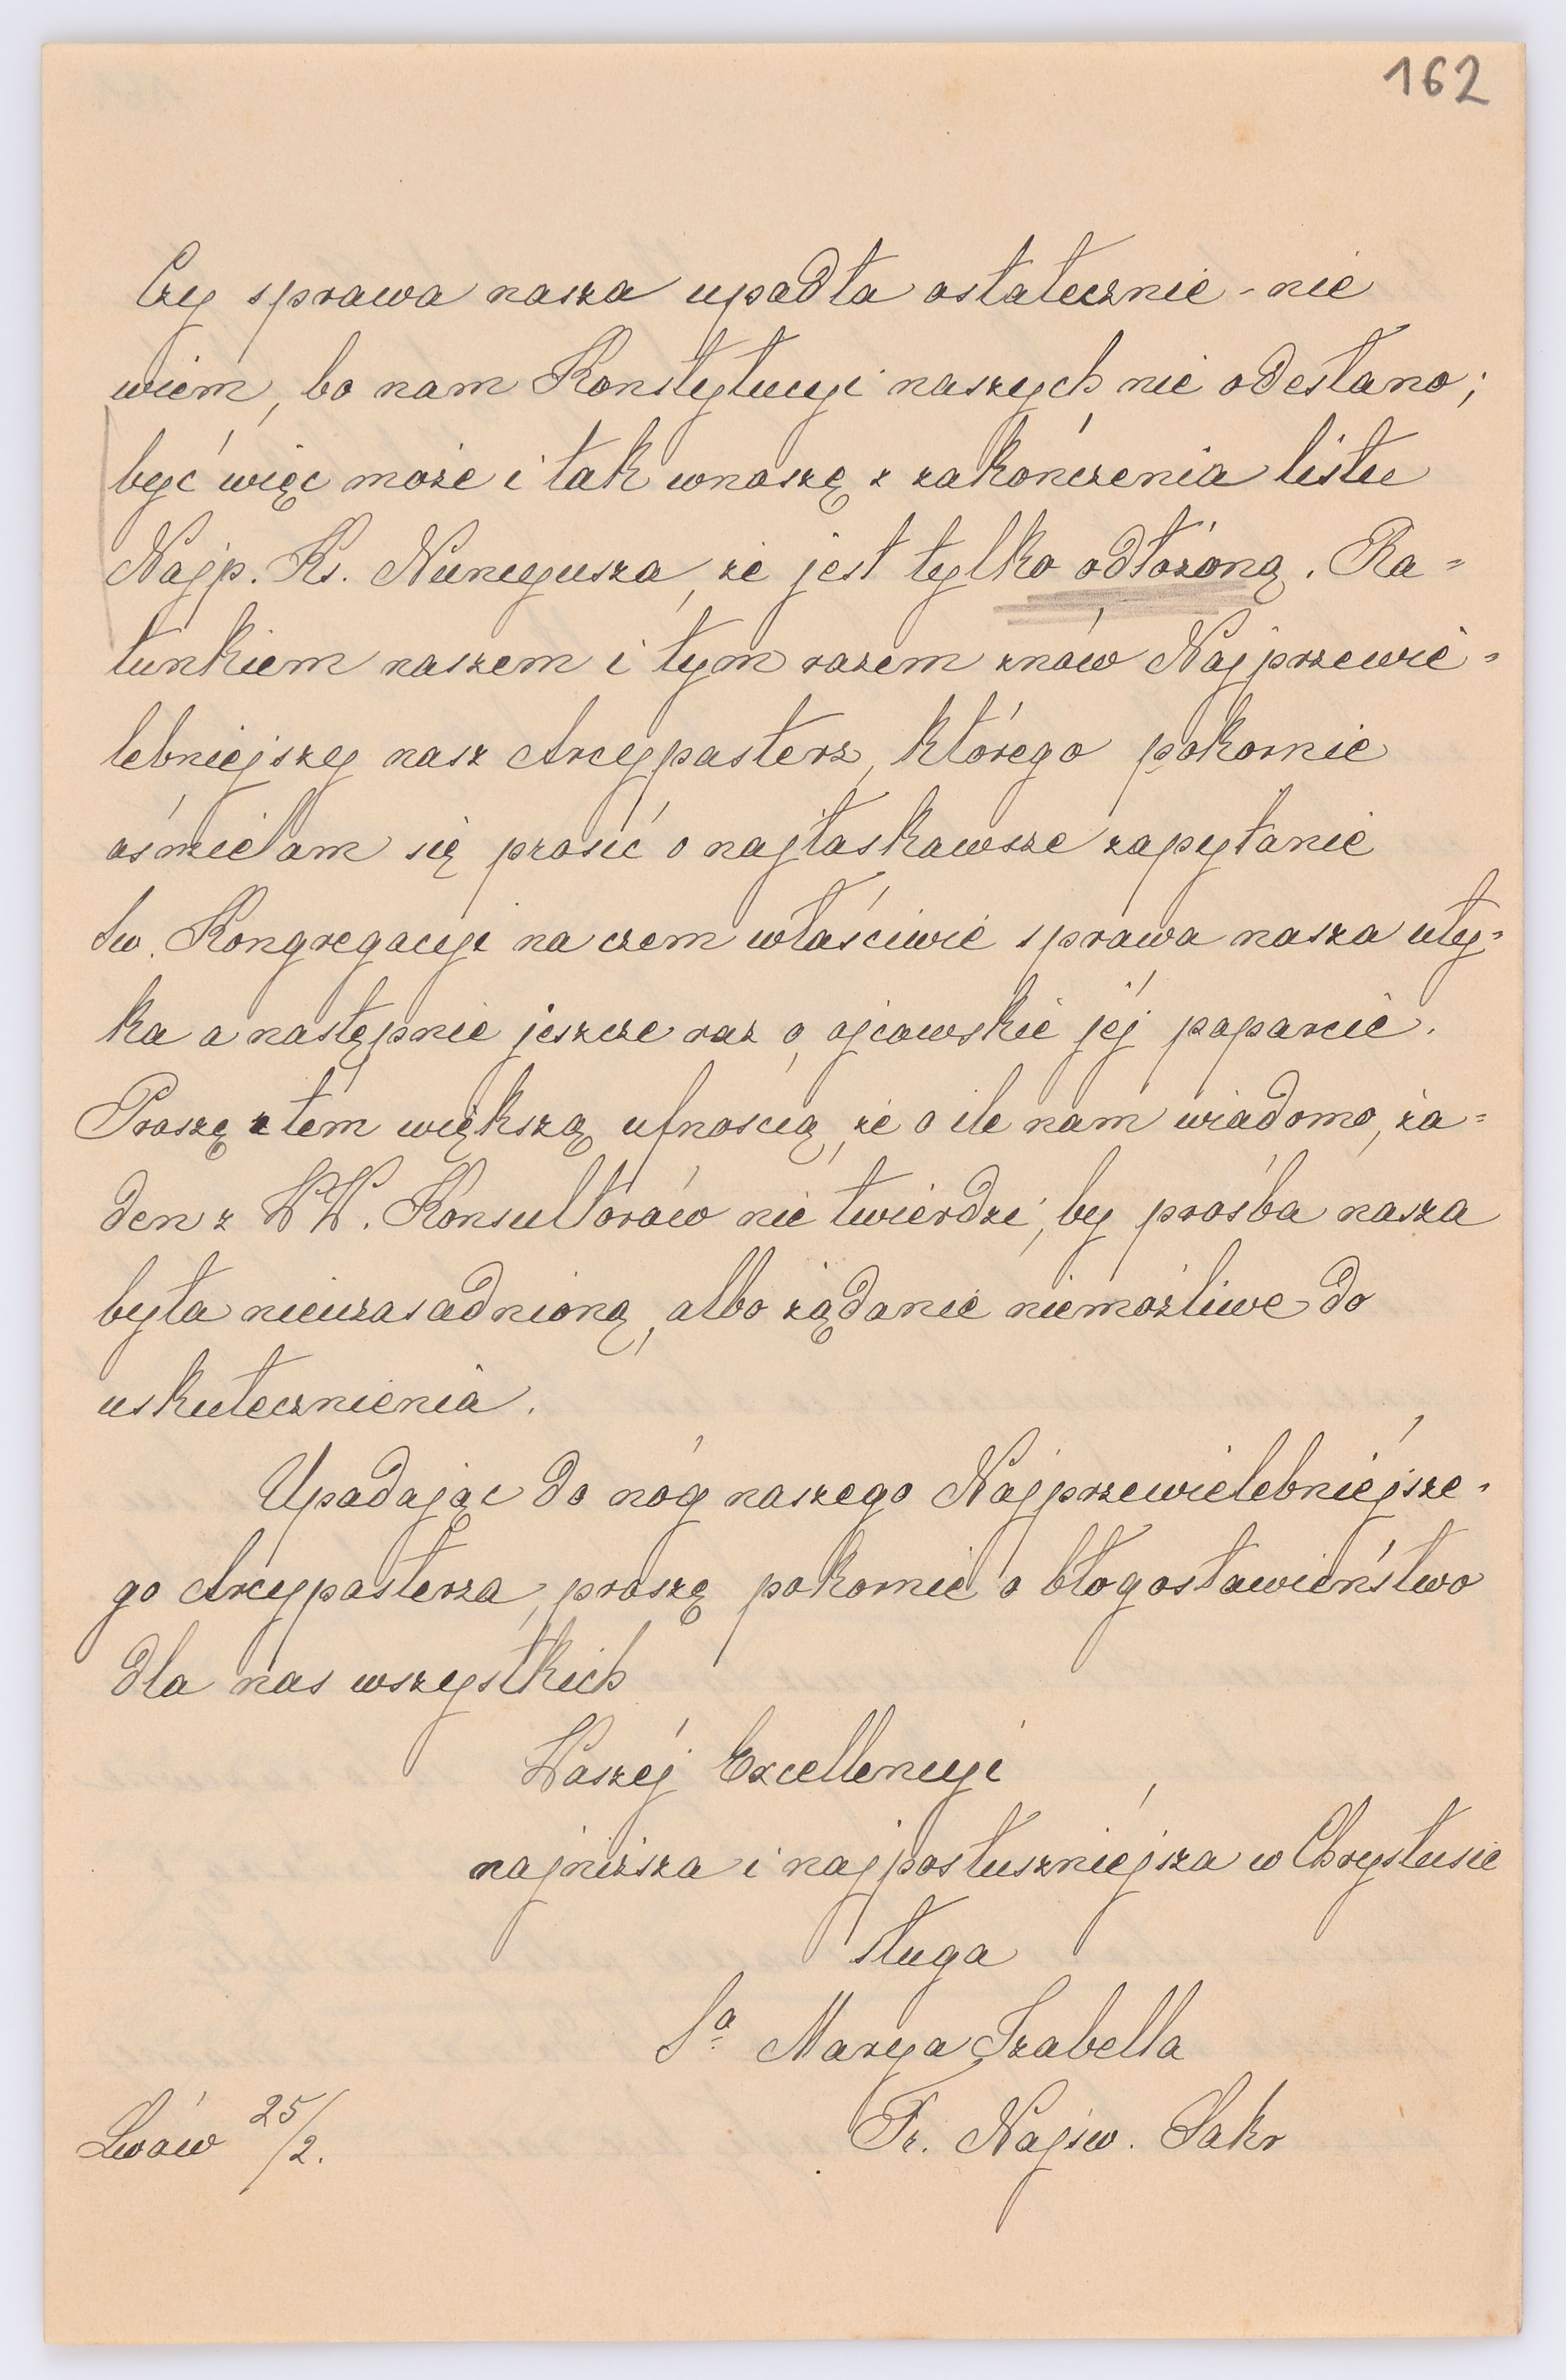 162
Czy sprawa nasza upadła ostatecznie - nie
wiem, bo nam Konstytucyi naszych nie odesłano;
być więc może i tak wnoszę z zakończenia listu
Najp. Ks. Nuncyusza, że jest tylko odłożoną. Ra=
tunkiem naszem i tym razem znów Najprzewie=
lebniejszy nasz Arcypasterz, którego pokornie
ośmielam się prosić o najłaskawsze zapytanie
Św. Kongregacyi na czem właściwie sprawa nasza uty=
ka a następnie jeszcze raz o ojcowskie jéj poparcie.
Proszę z tém większą ufnością, że o ile nam wiadomo, ża=
den z WW. Konsultorów nie twierdzi, by prośba nasza
była nieuzasadnioną, albo żądanie niemożliwe do
uskutecznienia.
Upadając do nóg naszego Najprzewielebniéjsze=
go Arcypasterza, proszę pokornie o błogosławieństwo
dla nas wszystkich
Waszéj Excellencyi
najniższa i najposłuszniéjsza w Chrystusie
sługa
Sª Marya Izabella
Fr. Najśw. Sakr
Lwów 25/2.